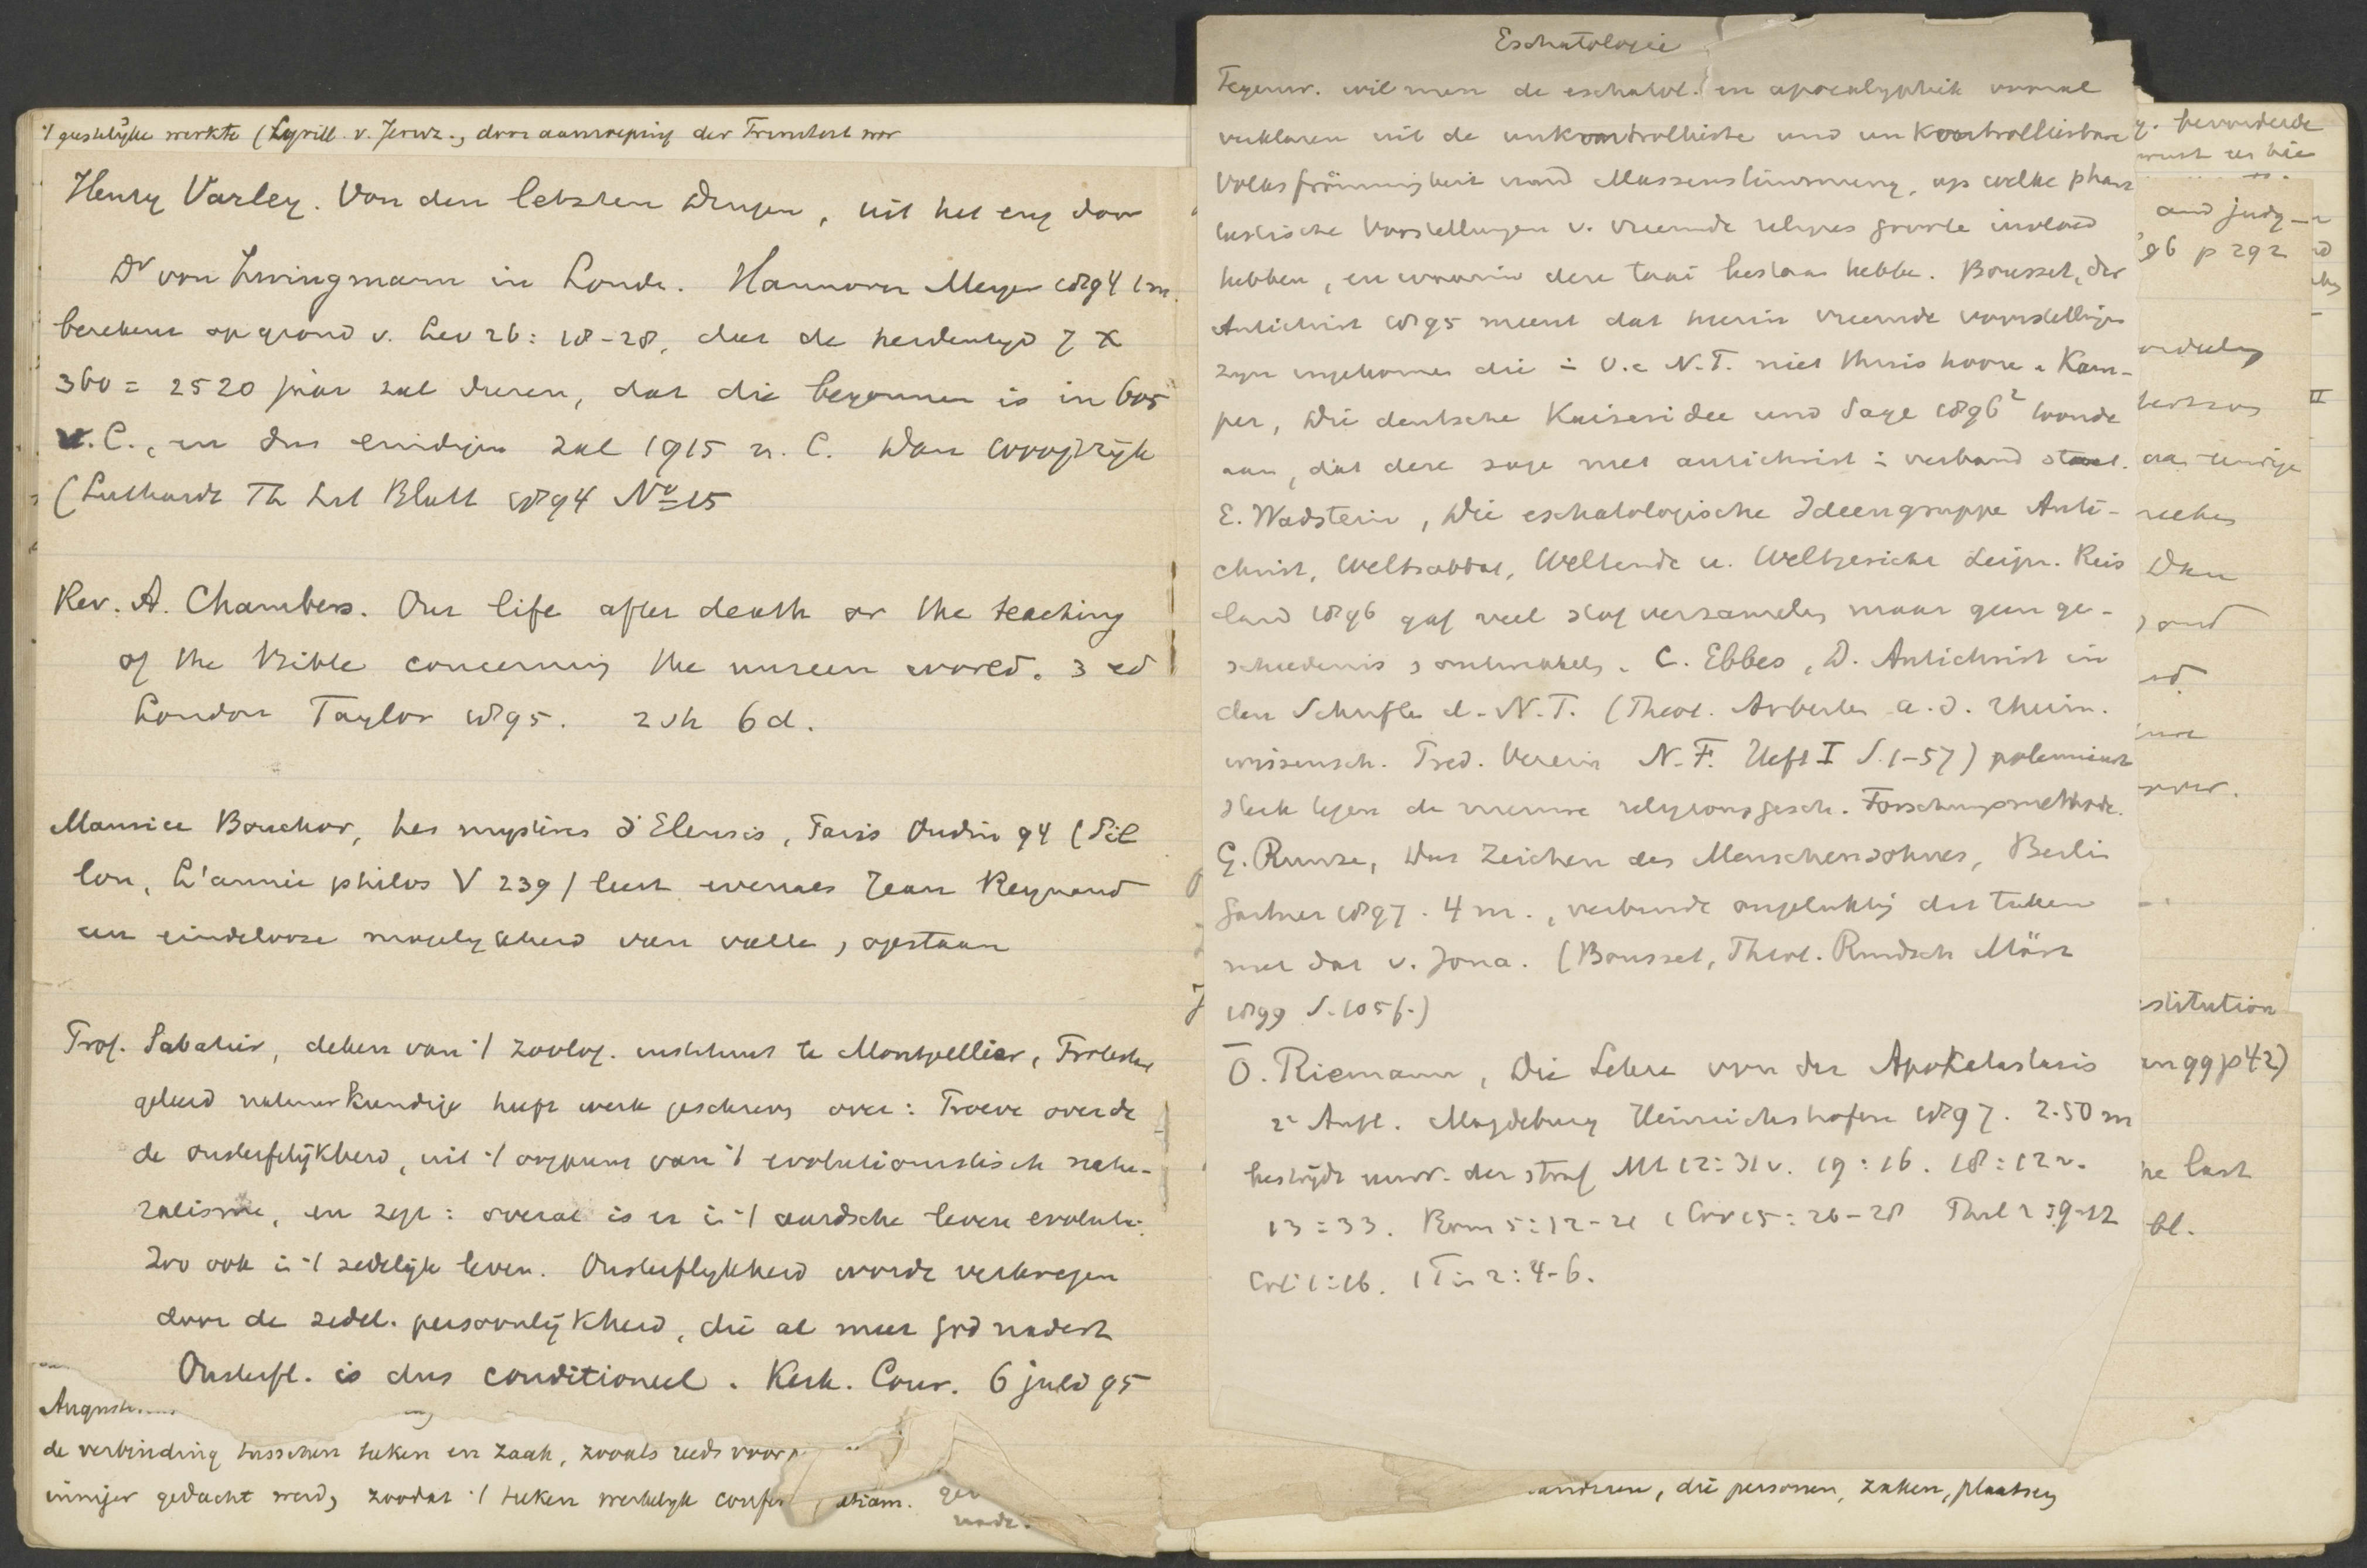 't geestelijke werkte (Cyrill. v. Jeruz., door aanroeping der Triniteit wor
Henry Varley. Von den letzten Dingen, uit het eng door
Dr von Zwingmann in Londe. Hannover Meyer 1894 1 m.
berekent op grond v. Lev 26: 18-28, dat de heidentyd 7 x
360 = 2520 jaar zal duren, dat die begonnen is in 605
v. C., en dus eindigen zal 1915 n. C. Dan
(Luthardt Th Lit Blatt 1894 No 15
Rev. A. Chambers. Our life after death or the teaching
of the Bible concerning the unseen world. 3 ed
London Taylor 1895. 2 sh 6 d.
Maurice Bouchor, Les mystères d'Eleusis, Paris Oudin 94 (Pil
lon, L'année philos V 239) leert evenals Jean Reynaud
een eindelooze mogelykheid van valle, opstaan
Prof. Sabatier, deken van 't zoolog. instituut te Montpellier, Protestx
geleerd natuurkundige heeft werk geschreven over: Proeve over de
de onsterfelijkheid, uit 't oogpunt van 't evolutionistisch natu-
ralisme, en zegt: overal is er in 't aardsche leven evolutie.
Zoo ook in 't zedelijk leven. Onsterflykheid wordt verkregen
door de zedel. persoonlijkheid, die al meer God nadert
Onsterfl. is dus conditioneel. Kerk. Cour. 6 july 95
August
de verbinding tusschen teken en zaak, zooals reeds voor
inniger gedacht werd, zoodat 't teken werkelyk etiam.
Eschatologie
Tegenw. wil men de eschatol. en apocalyptiek vooral
verklaren uit de unkontrollierte und unkontrollierbare
Volksfrömmigkeit und Massenstimmung, op welke phan
tastische Vorstellungen v. vreemde religies groote invloed
hebben, en waarin deze taai bestaan hebbe. Bousset, Der
Antichrist 1895 meent dat hierin vreemde voorstellingen
zyn ingekomen die in O. en N.T. niet thuis hoore. Kam-
per, Die deutsche Kaiseridee und Sage 1896² toonde
aan, dat deze sage met antichrist in verband staat.
E. Wadstein, Die eschatologische Ideengruppe Anti-
christ, Weltsabbat, Weltende u. Weltgericht Leipz. Reis
land 1896 gaf veel stof verzamelen maar geen ge-
schiedenis ontwikkel. C. Ebbes, D. Antichrist in
den Schriften d. N.T. (Theol. Arbeiten a. d. rhein.
wissensch. Pred. Verein N.F. Heft I S. 1-57) polemiseert
sterk tegen de nieuwe religionsgesch. Forschungsmethode.
G. Runze, Das Zeichen des Menschensohnes, Berlin
Gärtner 1897. 4 m., verbindt ongelukkig dit teken
met dat v. Jona. (Bousset, Theol. Rundsch März
1899 S. 105 f.)
O. Riemann, Die Lehre von der Apokatastasis
2e Aufl. Magdeburg Heinrichshofen 1897. 2.50 m
bestrijdt eeuw. der straf Mt 12:31 v. 19:16. 18:12 v.
13:33. Rom 5:12-21 1 Cor 15:26-28 Phil 2:9-12
Col 1:16. 1 Tim 2:4-6.
bevorderde
and judg-
'96 p 292
Dan
stitution
an 99 p 42)
he last
bl.
anderen, die personen, zaken, plaatsen